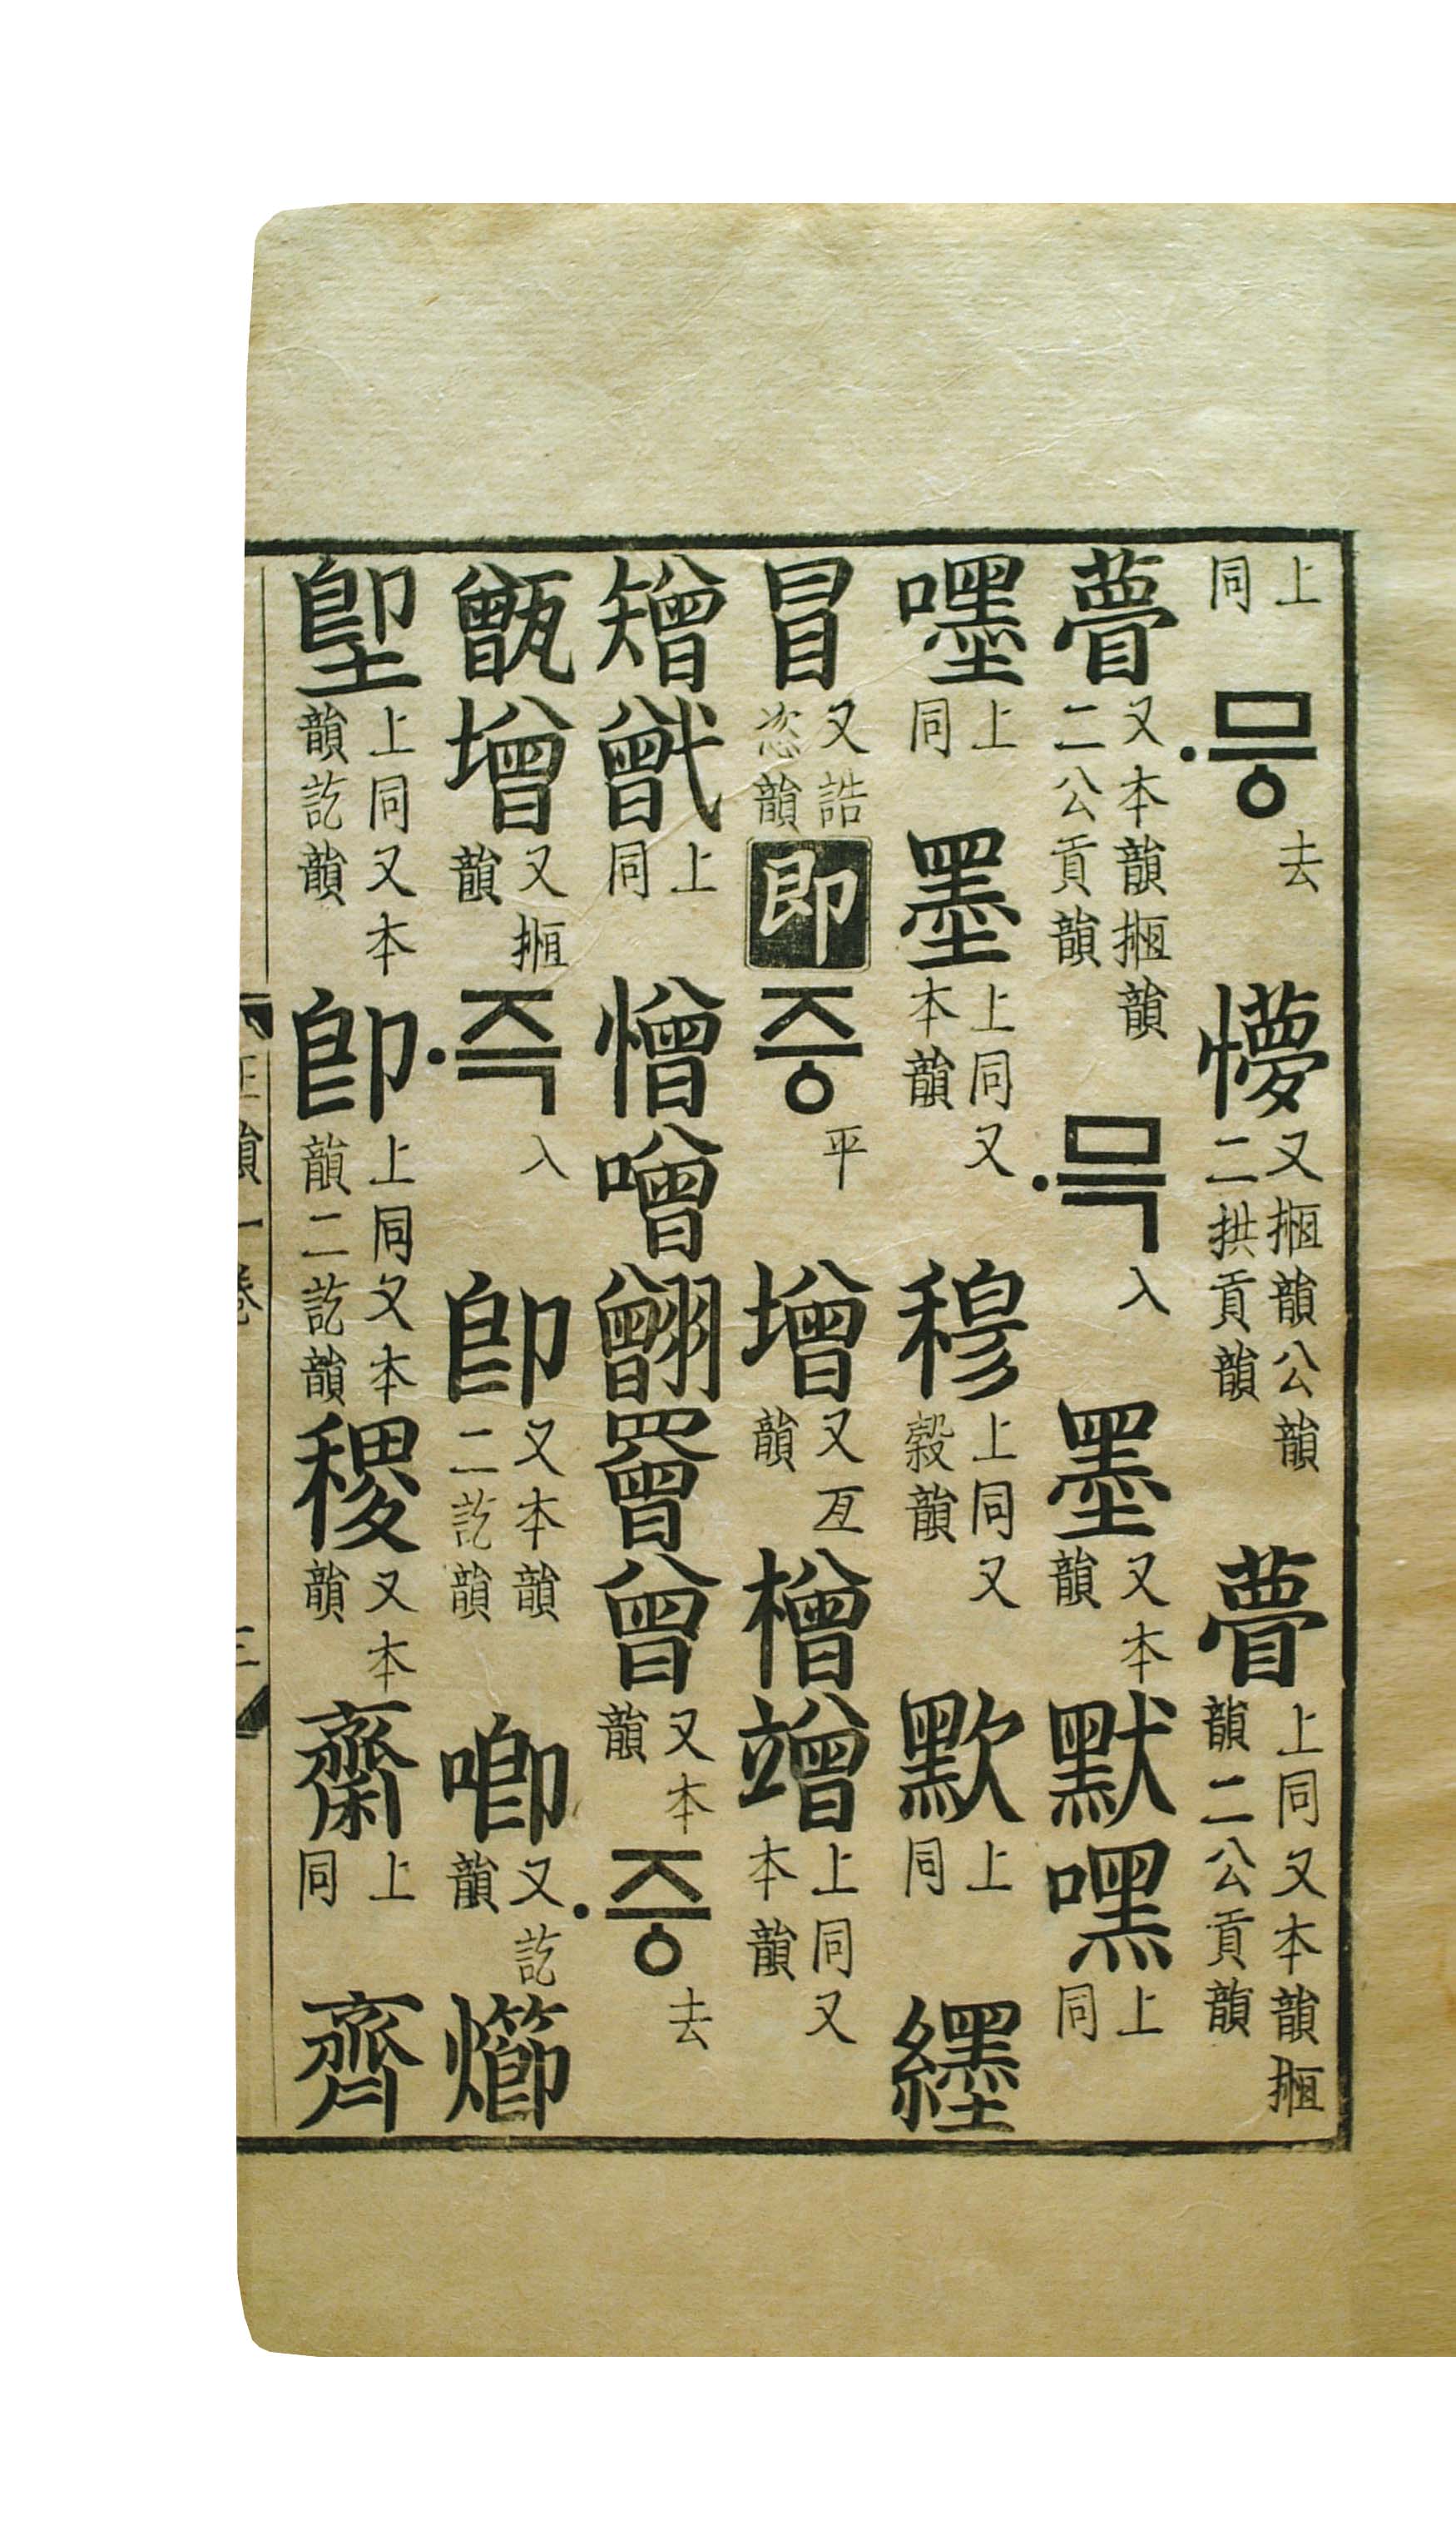 上同 ·믕 去 懜 又揯韻公韻二拱貢韻 瞢 上同又本韻揯韻二公貢韻
瞢 又本韻揯韻二公貢韻 ·믁 入 墨 又本韻 默 嘿 上同
嚜 上同 墨 上同又本韻 穆 上同又穀韻 上同 纆
冒 又誥恣韻 卽 증 平 增 又亙韻 橧 竲 上同又本韻
矰 上同 憎 噌 罾 曾 又本韻 ·증 去
甑 增 又揯韻 ·즉 入 卽 又本韻二訖韻 喞 又訖韻
堲 上同又本韻訖韻 卽 上同又本韻二訖韻 稷 又本韻 上同 齊